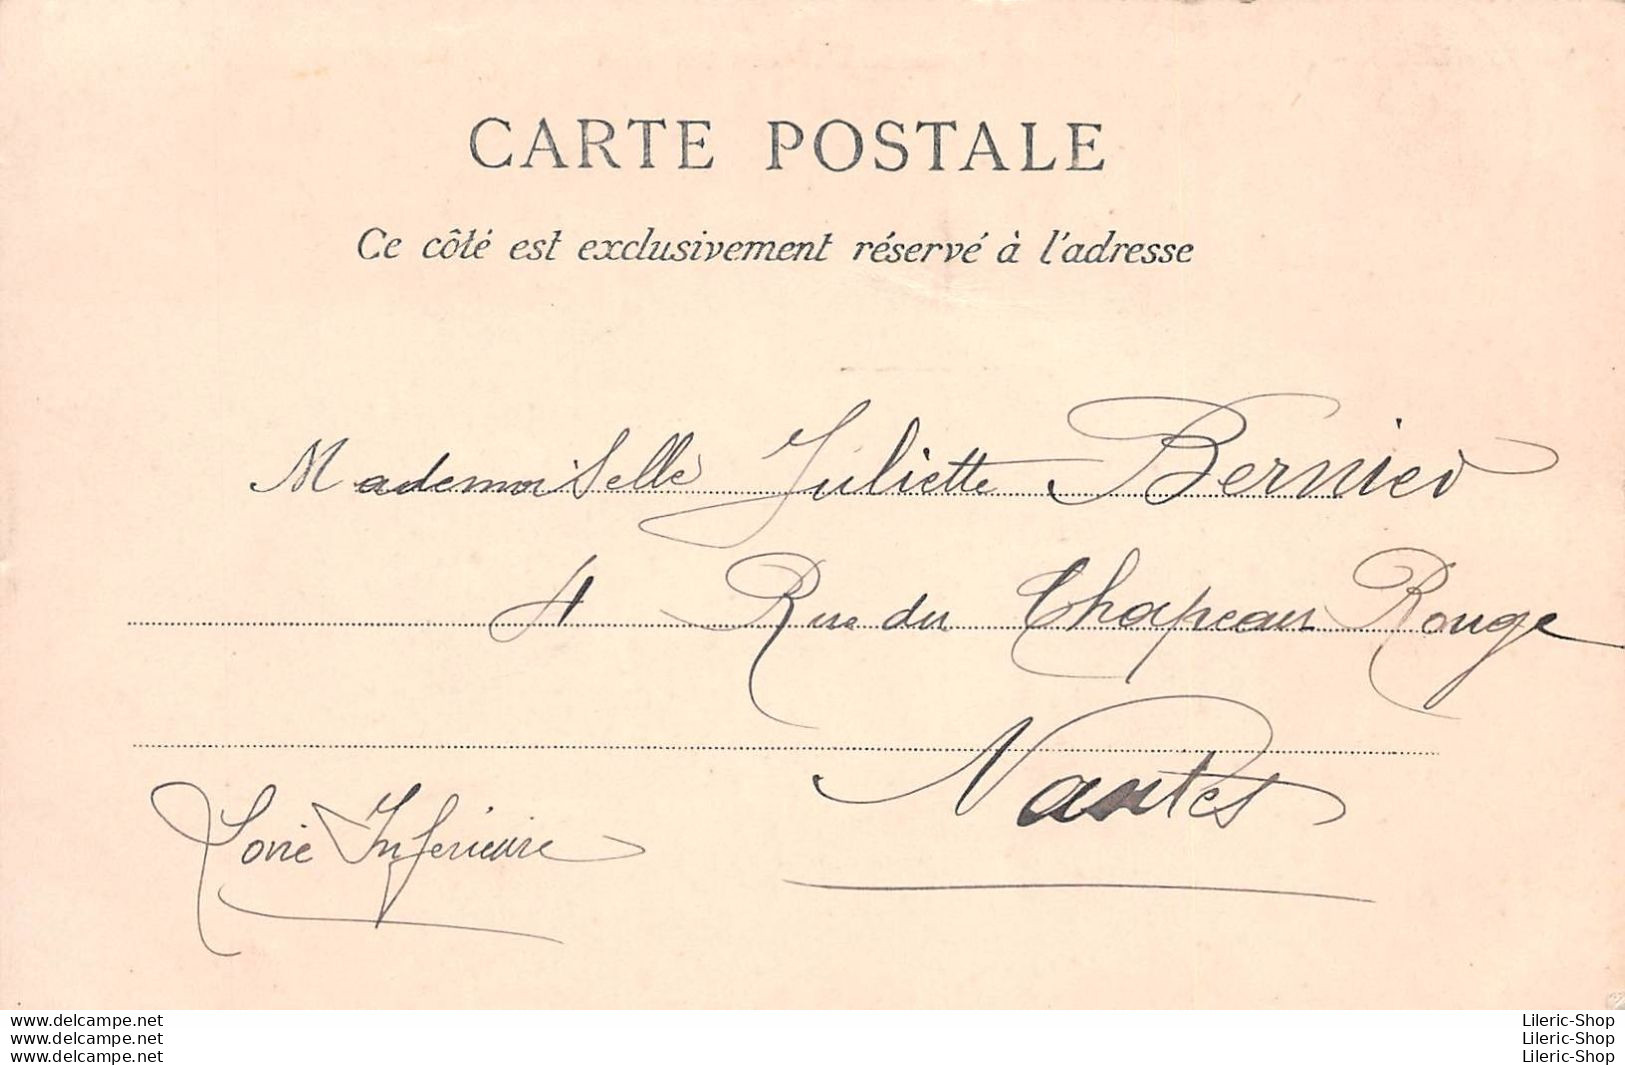 CARTE POSTALE
Ce côté est exclusivement réservé à l'adresse
Mademoiselle Juliette Bernier
4 Rue du Chapeau Rouge
Nantes
Loire Inférieure
www.delcampe.net
www.delcampe.net
www.delcampe.net
Lileric-Shop
Lileric-Shop
Lileric-Shop